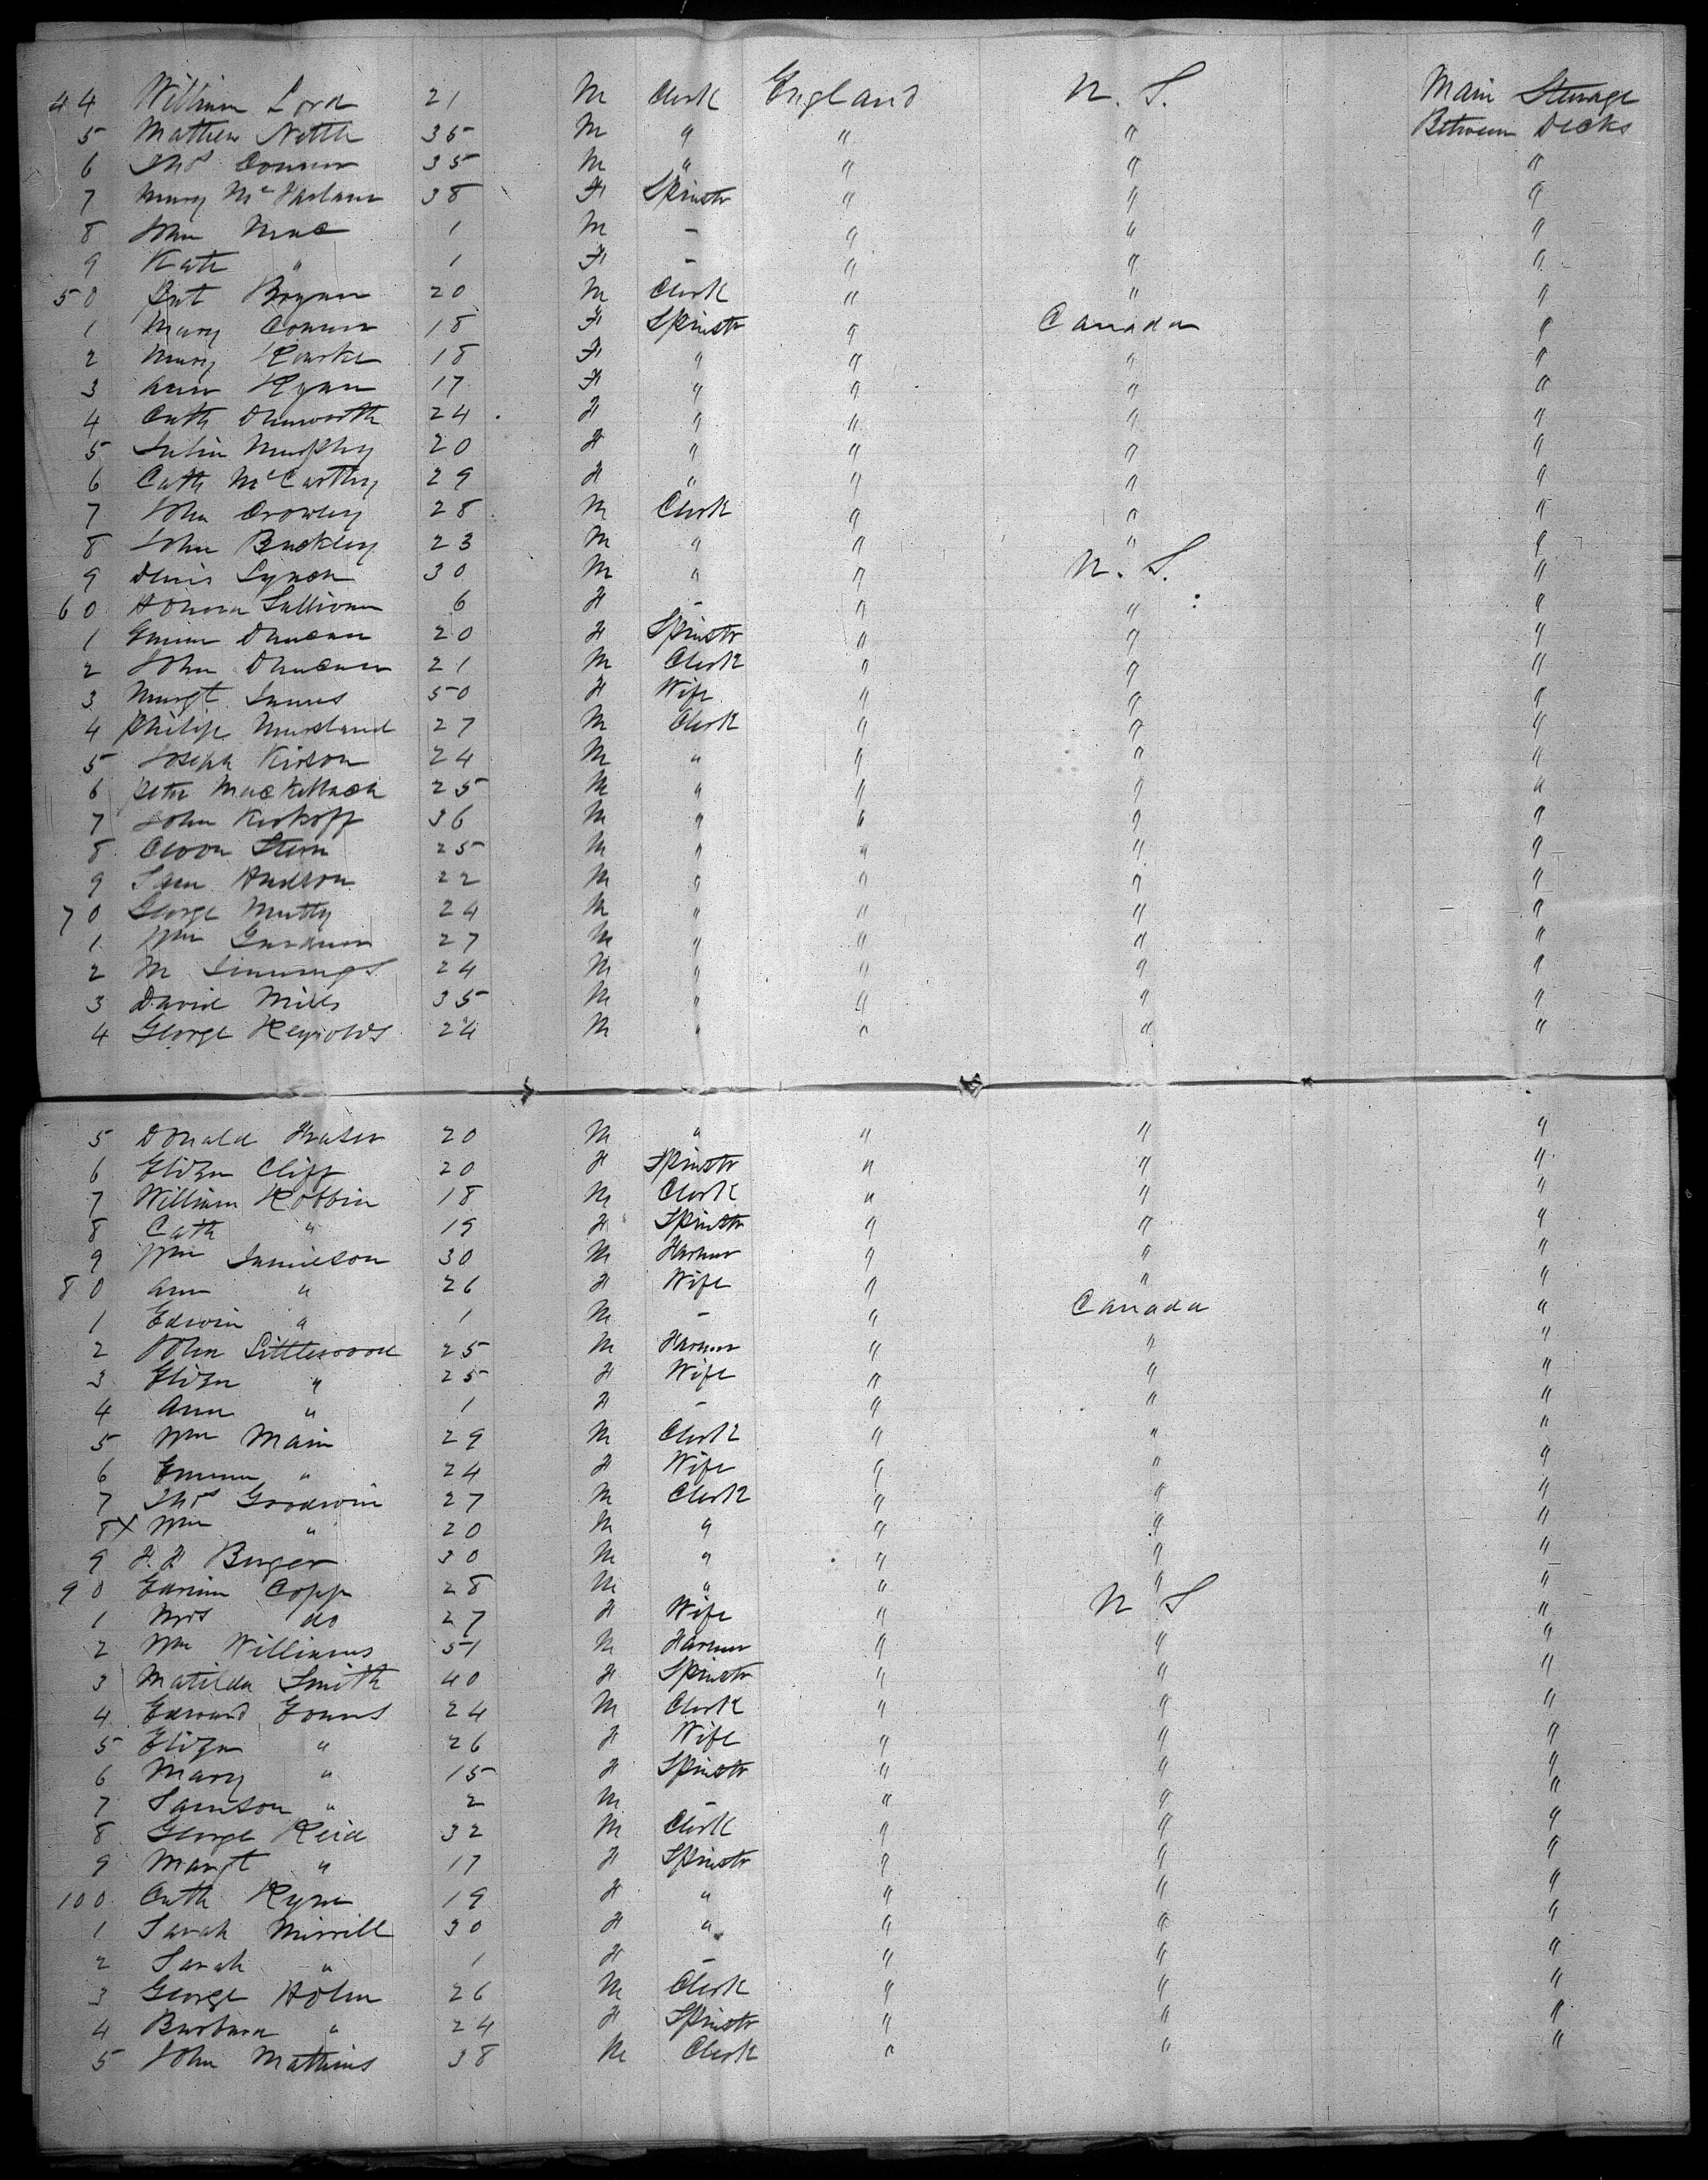 44 William Lord 21 M Clerk England N. S. Main Steerage
5 Mathew Nettle 35 M " " " Between Decks
6 Thos Connor 35 M " " " "
7 Mary McFarlane 38 F Spinstr " " "
8 John Mac 1 M - " " "
9 Kate " 1 F - " " "
50 Pat Bryan 20 M Clerk " " "
1 Mary Connor 18 F Spinstr " Canada "
2 Mary Rourke 18 F " " " "
3 Ann Ryan 17 F " " " "
4 Cath Dunworth 24 F " " " "
5 Julia Murphy 20 F " " " "
6 Cath McCarthy 29 F " " " "
7 John Crowley 28 M Clerk " " "
8 John Buckley 23 M " " " "
9 Denis Lynch 30 M " " N. S. "
60 Honora Sullivan 6 F - " " "
1 Emma Duncan 20 F Spinstr " " "
2 John Duncan 21 M Clerk " " "
3 Margt Innes 50 F Wife " " "
4 Philip Marsland 27 M Clerk " " "
5 Joseph Kirson 24 M " " " "
6 Peter 25 M " " " "
7 John Kirkoff 36 M " " " "
8 Stern 25 M " " " "
9 Sam Hudson 22 M " " " "
70 George Mutty 24 M " " " "
1 Wm Gardner 27 M " " " "
2 M Simmings 24 M " " " "
3 David Mills 35 M " " " "
4 George Reynolds 24 M " " " "
5 Donald Fraser 20 M " " " "
6 Eliza Cliff 20 F Spinstr " " "
7 William Robbin 18 M Clerk " " "
8 Cath " 19 F Spinstr " " "
9 Wm Jamieson 30 M Farmer " " "
80 Ann " 26 F Wife " " "
1 Edwin " 1 M - " Canada "
2 John Littlewood 25 M Farmer " " "
3 Eliza " 25 F Wife " " "
4 Ann " 1 F - " " "
5 Wm Main 29 M Clerk " " "
6 Emma " 24 F Wife " " "
7 Thos Goodwin 27 M Clerk " " "
8 x Wm " 20 M " " " "
9 F. F. Burger 30 M " " " "
90 Edwin Copp 28 M " " " "
1 Mrs do 27 F Wife " N S "
2 Wm Williams 51 M Farmer " " "
3 Matilda Smith 40 F Spinstr " " "
4 Edward Evans 24 M Clerk " " "
5 Eliza " 26 F Wife " " "
6 Mary " 15 F Spinstr " " "
7 Samson " 2 M - " " "
8 George Reid 32 M Clerk " " "
9 Margt " 17 F Spinstr " " "
100 Cath Ryan 19 F " " " "
1 Sarah Mirrill 30 F " " " "
2 Sarah " 1 F - " " "
3 George Holm 26 M Clerk " " "
4 Barbara " 24 F Spinstr " " "
5 John Mathins 38 M Clerk " " "